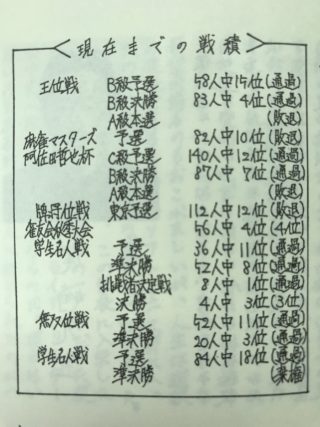 現在までの戦積
王位戦 B級予選 58人中15位(通過)
B級決勝 83人中4位(通過)
A級本選 (敗退)
麻雀マスターズ 予選 82人中10位(敗退)
阿佐田哲也杯 C級予選 140人中12位(通過)
B級決勝 87人中7位(通過)
A級本選 (敗退)
位戦 東京予選 112人中12位(敗退)
雀友会秋季大会 56人中4位(4位)
学生名人戦 予選 36人中11位(通過)
準決勝 52人中8位(通過)
挑戦者決定戦 8人中1位(通過)
決勝 4人中3位(3位)
無双位戦 予選 52人中11位(通過)
準決勝 20人中3位(通過)
学生名人戦 予選 84人中18位(通過)
準決勝 (棄権)